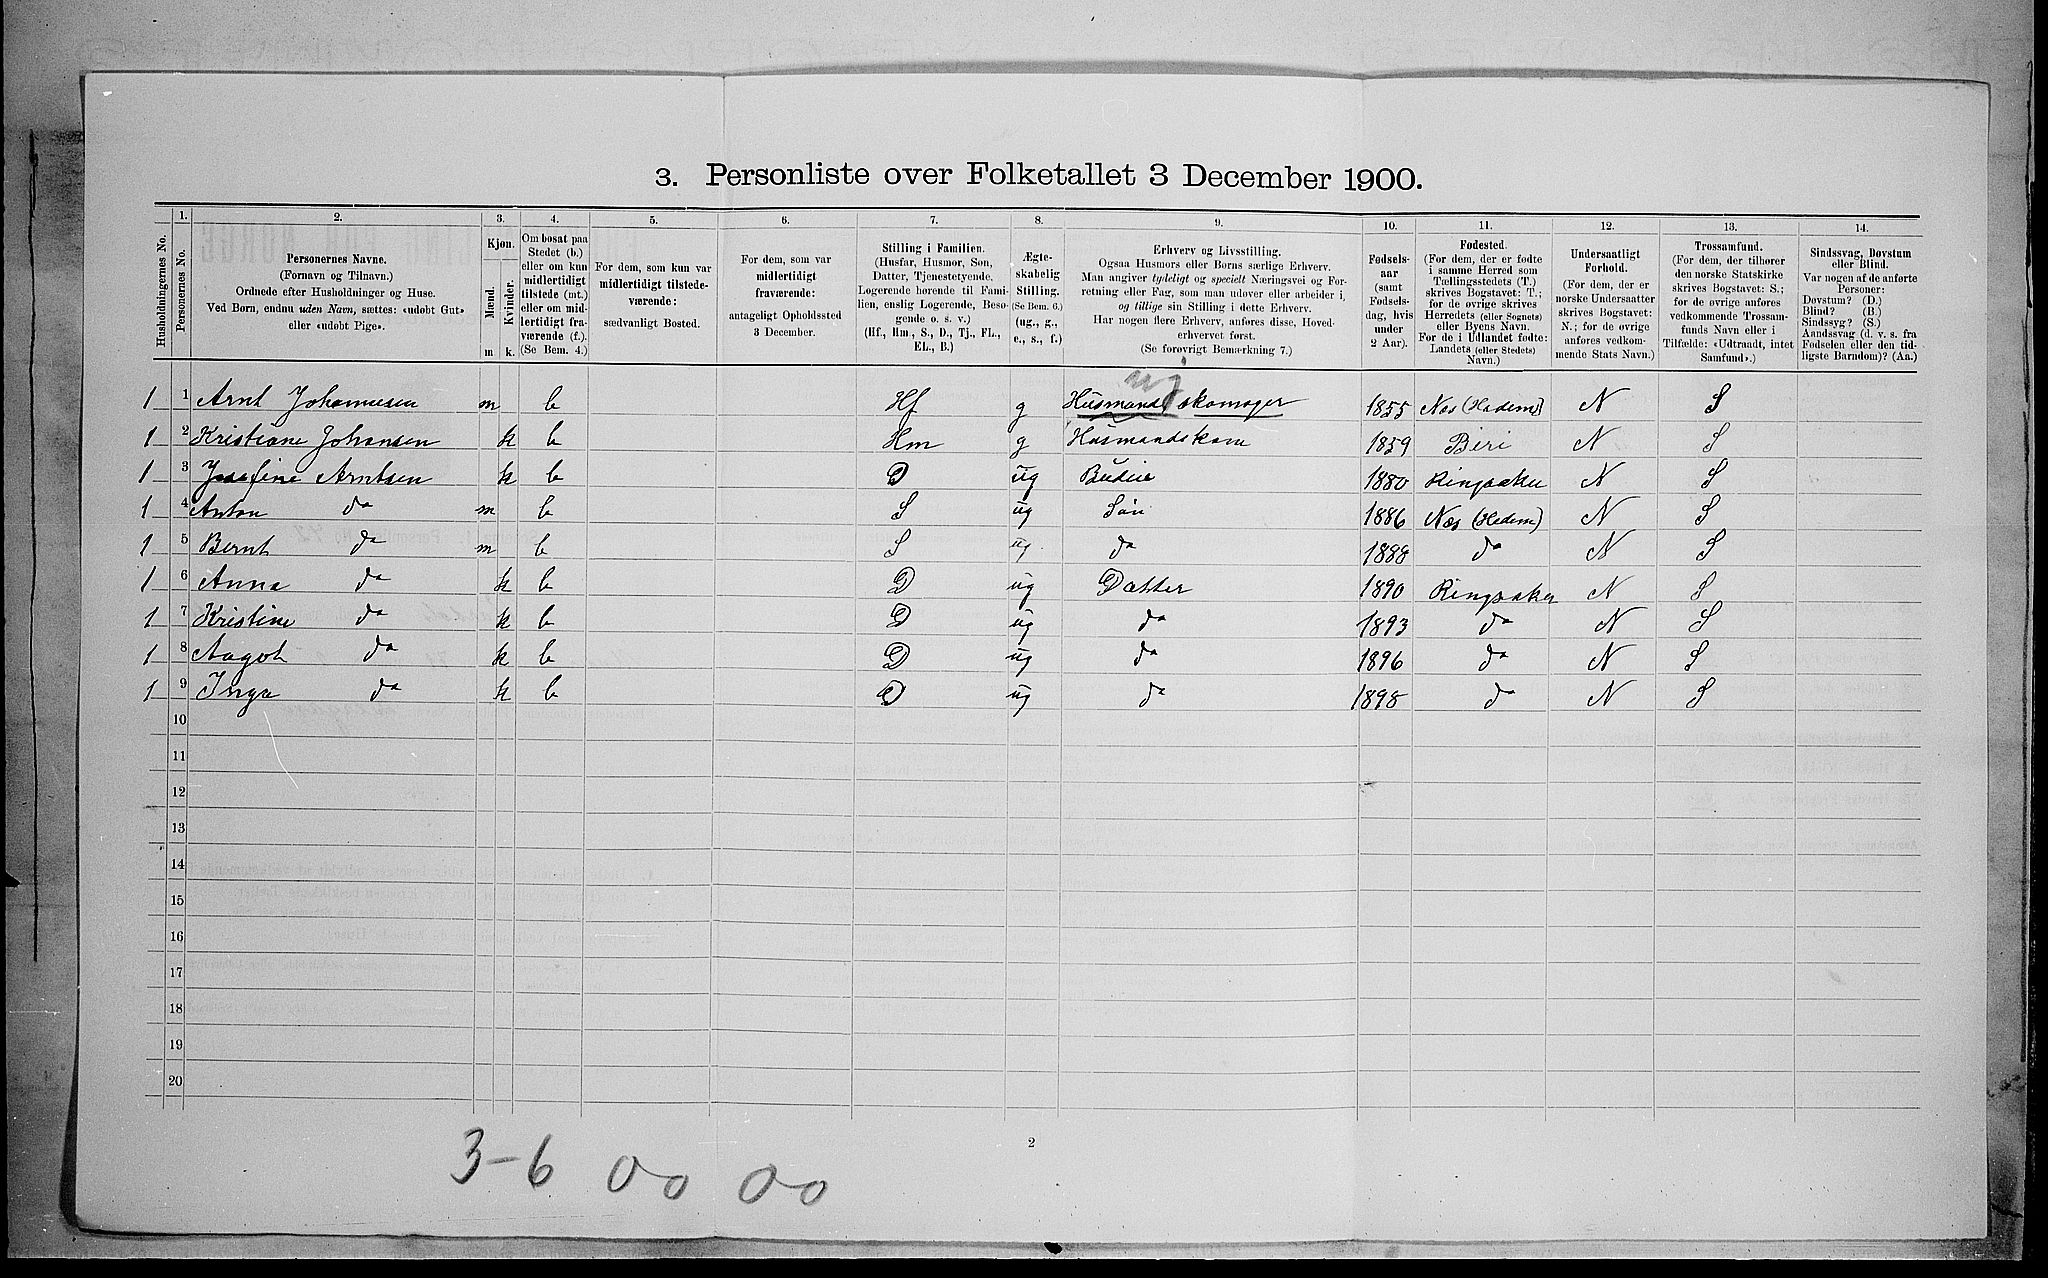 3. Personliste over Folketallet 3 December 1900.
1. 2. 3. 4. 5. 6. 7. 8. 9. 10. 11. 12. 13. 14.
Husholdningernes No.
Personernes No.
Personernes Navne.
(Fornavn og Tilnavn.)
Ordnede efter Husholdninger og Huse.
Ved Børn, endnu uden Navn, sættes: «udøbt Gut»
eller «udøbt Pige».
Kjøn.
Mænd.
Kvinder.
m k.
Om bosat paa
Stedet (b.)
eller om kun
midlertidigt
tilstede (mt.)
eller om mid-
lertidigt fra-
værende (f.).
(Se Bem. 4.)
For dem, som kun var
midlertidigt tilstede-
værende:
sædvanligt Bosted.
For dem, som var
midlertidigt
fraværende:
antageligt Opholdssted
3 December.
Stilling i Familien.
(Husfar, Husmor, Søn,
Datter, Tjenestetyende,
Logerende hørende til Fami-
lien, enslig Logerende, Besø-
gende o. s. v.)
(Hf., Hm., S., D., Tj., FL.,
EL., B.)
Ægte-
skabelig
Stilling.
(Se Bem. 6.)
(ug., g.,
e., s., f.)
Erhverv og Livsstilling.
Ogsaa Husmors eller Børns særlige Erhverv.
Man angiver tydeligt og specielt Næringsvei og For-
retning eller Fag, som man udøver eller arbeider i,
og tillige sin Stilling i dette Erhverv.
Har nogen flere Erhverv, anføres disse, Hoved-
erhvervet først.
(Se forøvrigt Bemærkning 7.)
Fødsels-
aar
(samt
Fødsels-
dag, hvis
under
2 Aar).
Fødested.
(For dem, der er fødte
i samme Herred som
Tællingsstedets (T.)
skrives Bogstavet: T.;
for de øvrige skrives
Herredets (eller Sognets)
eller Byens Navn.
For de i Udlandet fødte:
Landets (eller Stedets)
Navn.)
Undersaatligt
Forhold.
(For dem, der er
norske Undersaatter
skrives Bogstavet:
N.; for de øvrige
anføres vedkom-
mende Stats Navn.)
Trossamfund.
(For dem, der tilhører
den norske Statskirke
skrives Bogstavet: S.;
for de øvrige anføres
vedkommende Trossam-
funds Navn eller i
Tilfælde: «Udtraadt, intet
Samfund».)
Sindssvag, Døvstum
eller Blind.
Var nogen af de anførte
Personer:
Døvstum? (D.)
Blind? (B.)
Sindssyg? (S.)
Aandssvag (d. v. s. fra
Fødselen eller den tid-
ligste Barndom)? (Aa.)
1 1 Arnt Johannesen m b Hf g Husmand skomager 1855 Nes (Hedem) N S
1 2 Kristiane Johansen k b Hm g Husmandskone 1859 Biri N S
1 3 Josefine Arntsen k b D ug Budeie 1880 Ringsaker N S
1 4 Anton do m b S ug Søn 1886 Næs (Hedem) N S
1 5 Bernt do m b S ug do 1888 do N S
1 6 Anna do k b D ug Datter 1890 Ringsaker N S
1 7 Kristine do k b D ug do 1893 do N S
1 8 Aagot do k b D ug do 1896 do N S
1 9 Inga do k b D ug do 1898 do N S
10
11
12
13
14
15
16
17
18
19
20
2
3-6 00 00